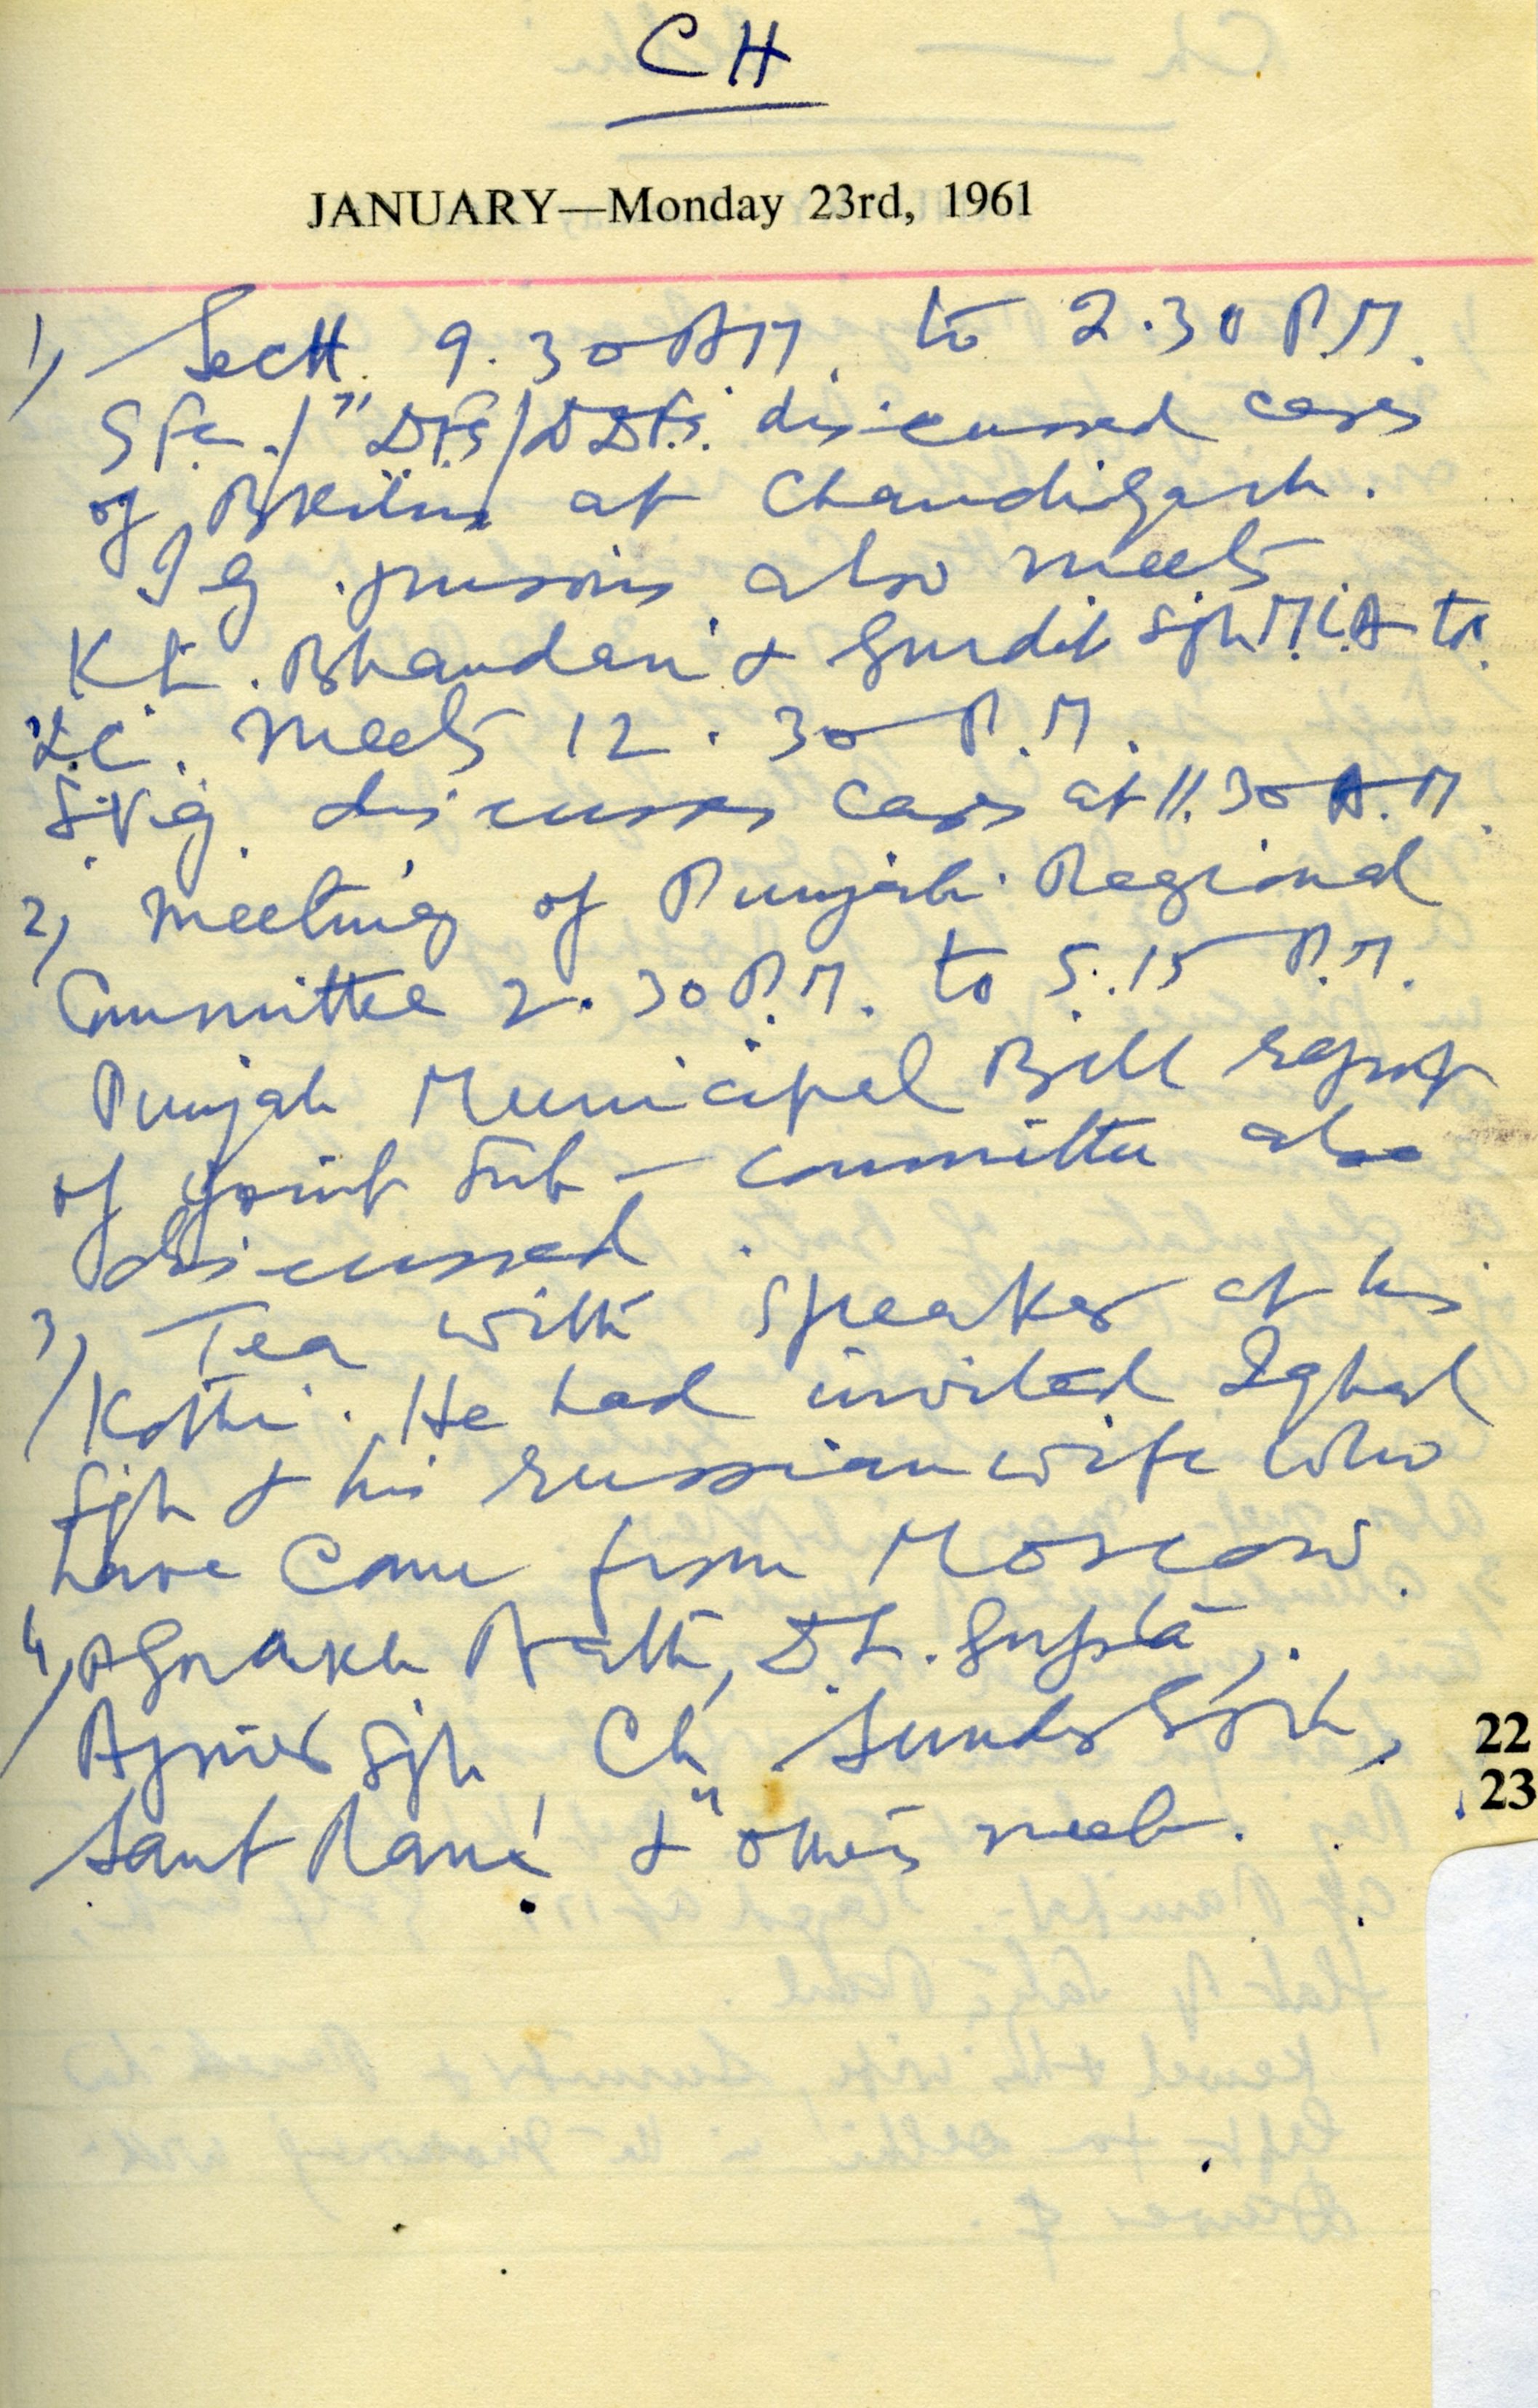 CH
JANUARY—Monday 23rd, 1961
1) Sectt. 9.30 AM to 2.30 P.M.
SFC./DFS/DDFS. discussed cases
of BKilns at Chandigarh.
I g. prisons also meets
K L. Bhandari & Gurdit Sgh M.L.A to
meets 12.30 P.M.
discusses cases at 11.30 A.M.
2) Meeting of Punjabi Regional
Committee 2.30 P.M. to 5.15 P.M.
Punjab Municipal Bill report
of joint Sub-committee also
discussed.
3) Tea with Speaker at his
Kothi. He had invited Iqbal
Sgh & his russian wife who
have come from Moscow.
4) Gorakh Nath, D L. Gupta,
Ajmer Sgh, Ch. Sunder Sgh,
Sant Ram & others meet.
22
23